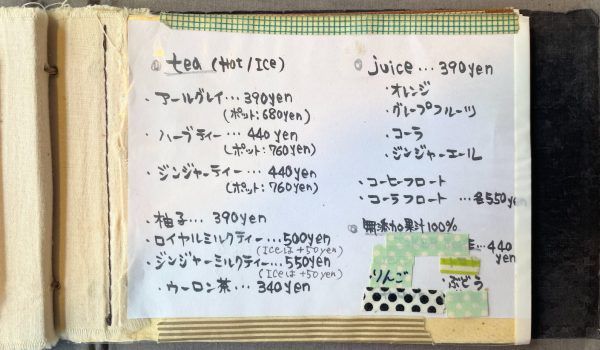 tea (Hot/Ice)
・アールグレイ…390yen
(ポット:680yen)
・ハーブティー…440yen
(ポット:760yen)
・ジンジャーティー…440yen
(ポット:760yen)
・柚子…390yen
・ロイヤルミルクティー…500yen
(Iceは+50yen)
・ジンジャーミルクティー…550yen
(Iceは+50yen)
・ウーロン茶…340yen
juice…390yen
・オレンジ
・グレープフルーツ
・コーラ
・ジンジャーエール
・コーヒーフロート
・コーラフロート…各550yen
無添加果汁100%
…440
yen
りんご
・ぶどう